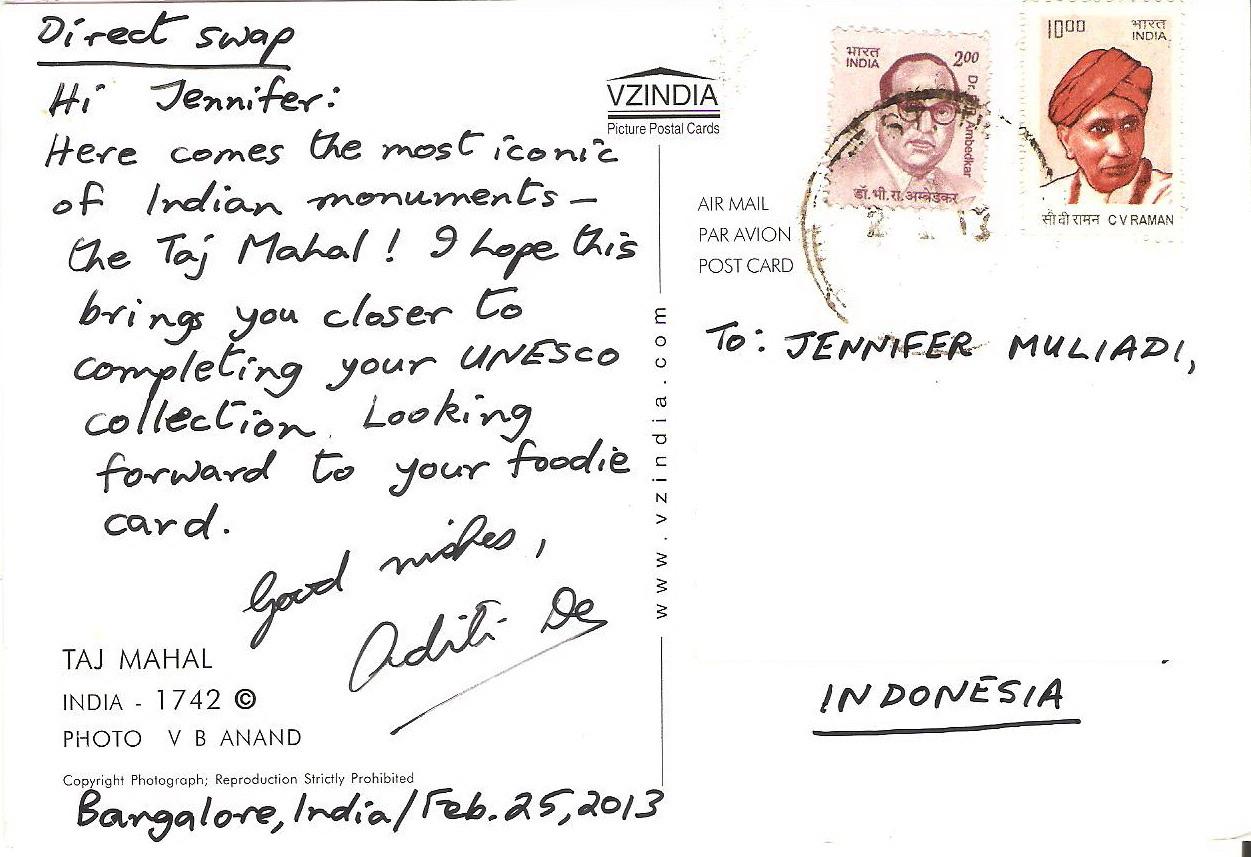 Direct swap
Hi Jennifer:
Here comes the most iconic
of Indian monuments –
the Taj Mahal! I hope this
brings you closer to
completing your UNESCO
collection. Looking
forward to your foodie
card.
Good wishes,
Aditi De
TAJ MAHAL
INDIA - 1742 ©
PHOTO V B ANAND
Copyright Photograph; Reproduction Strictly Prohibited
Bangalore, India/Feb. 25, 2013
VZINDIA
Picture Postal Cards
www.vzindia.com
AIR MAIL
PAR AVION
POST CARD
भारत
INDIA
200
Ambedkar
डॉ. भी. रा. अम्बेडकर
1000
भारत
INDIA
सी वी रामन C V RAMAN
To: JENNIFER MULIADI,
INDONESIA